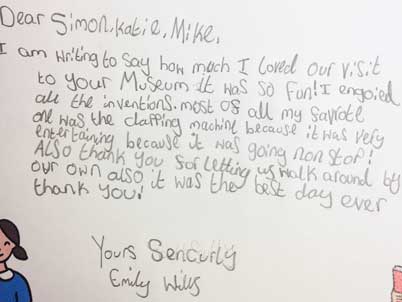 Dear Simon, Katie, Mike,
I am writing to say how much I loved our visit
to your Museum It was so fun! I engoied
all the inventions. most os all my savrote
one was the clapping machine because it was very
entertaining because it was going non stop!
ALSO thank you sor letting us walk around by
our own also it was the best day ever
thank you!
Yours Sencurly
Emily Wills